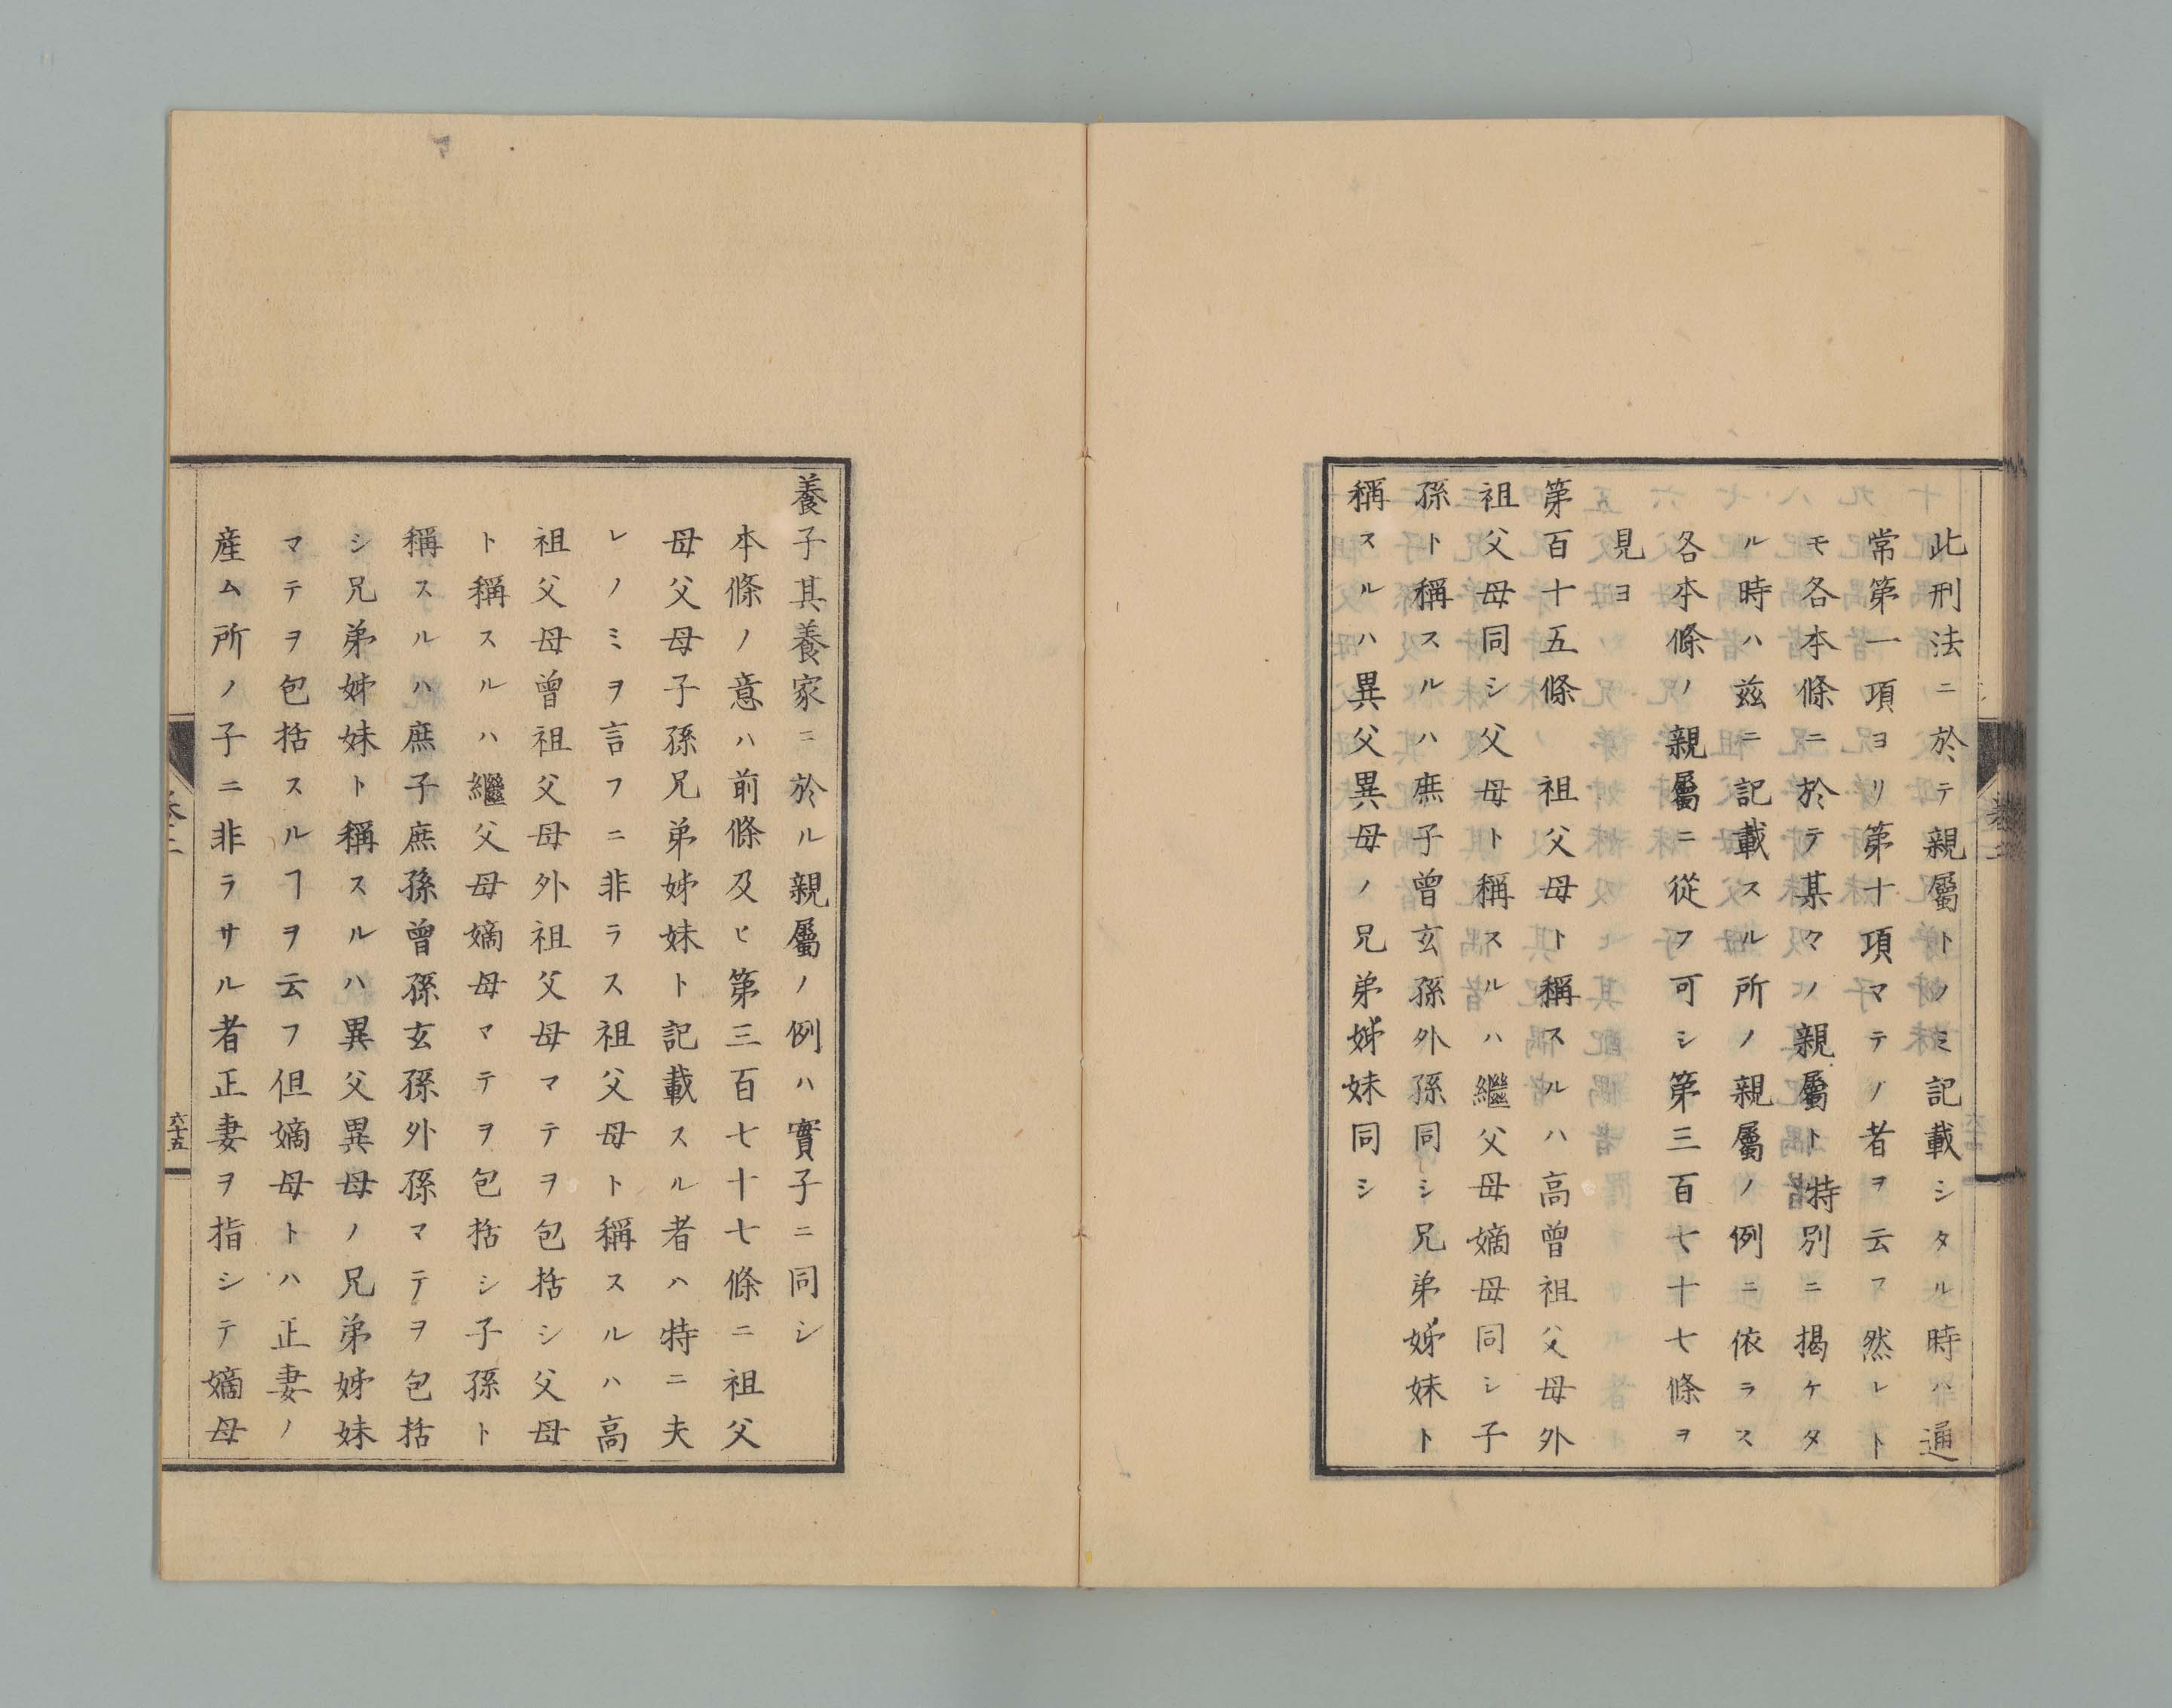 此刑法ニ於テ親屬トノミ記載シタル時ハ通
常第一項ヨリ第十項マテノ者ヲ云フ然レト
モ各本條ニ於テ某々ノ親屬ト特別ニ揭ケタ
ル時ハ玆ニ記載スル所ノ親屬ノ例ニ依ラス
各本條ノ親屬ニ從フ可シ第三百七十七條ヲ
見ヨ
第百十五條　祖父母ト稱スルハ高曾祖父母外
祖父母同シ父母ト稱スルハ繼父母嫡母同シ子
孫ト稱スルハ庶子曾玄孫外孫同シ兄弟姊妹ト
稱スルハ異父異母ノ兄弟姊妹同シ
養子其養家ニ於ル親屬ノ例ハ實子ニ同シ
本條ノ意ハ前條及ヒ第三百七十七條ニ祖父
母父母子孫兄弟姊妹ト記載スル者ハ特ニ夫
レノミヲ言フニ非ラス祖父母ト稱スルハ高
祖父母曾祖父母外祖父母マテヲ包括シ父母
ト稱スルハ繼父母嫡母マテヲ包括シ子孫ト
稱スルハ庶子庶孫曾孫玄孫外孫マテヲ包括
シ兄弟姊妹ト稱スルハ異父異母ノ兄弟姊妹
マテヲ包括スルヿヲ云フ但嫡母トハ正妻ノ
産ム所ノ子ニ非ラサル者正妻ヲ指シテ嫡母
六十五